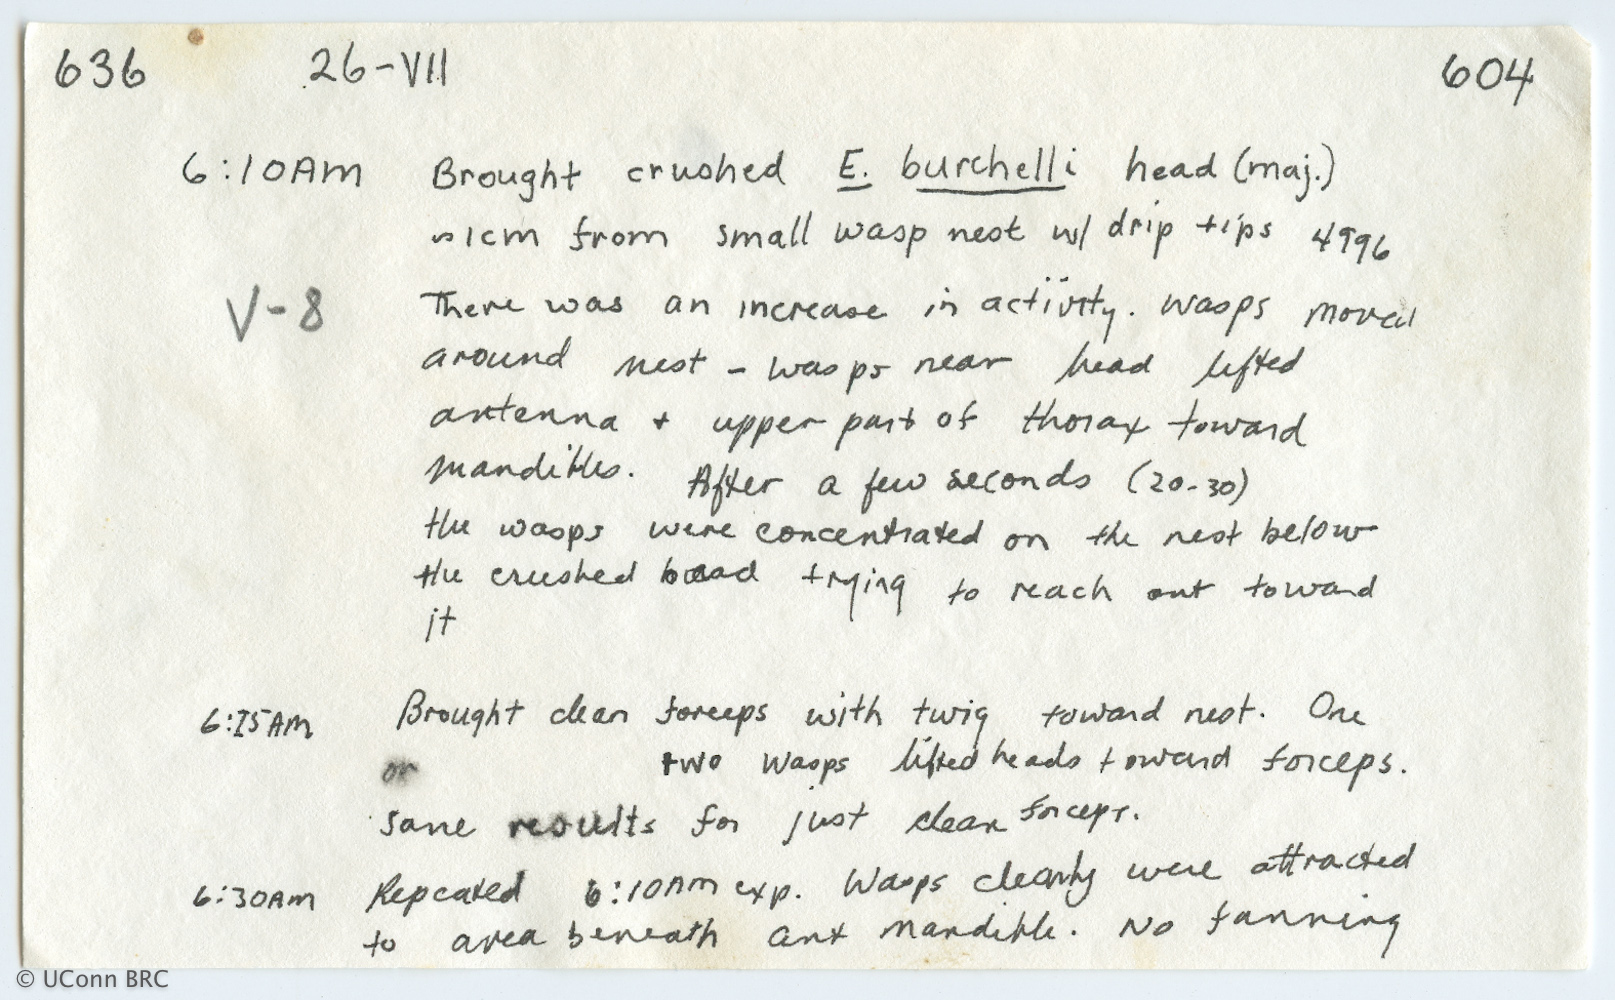 636 26-VII 604
6:10AM Brought crushed E. burchelli head (maj.)
~1cm from small wasp nest w/ drip tips 4996
V-8 There was an increase in activity. Wasps moved
around nest - wasps near head lifted
antenna + upper part of thorax toward
mandibles. After a few seconds (20-30)
the wasps were concentrated on the nest below
the crushed head trying to reach out toward
it
6:15AM Brought clean forceps with twig toward nest. One
or two wasps lifted heads toward forceps.
Same results for just clean forceps.
6:30AM Repeated 6:10AM exp. Wasps clearly were attracted
to area beneath ant mandible. No fanning
© UConn BRC